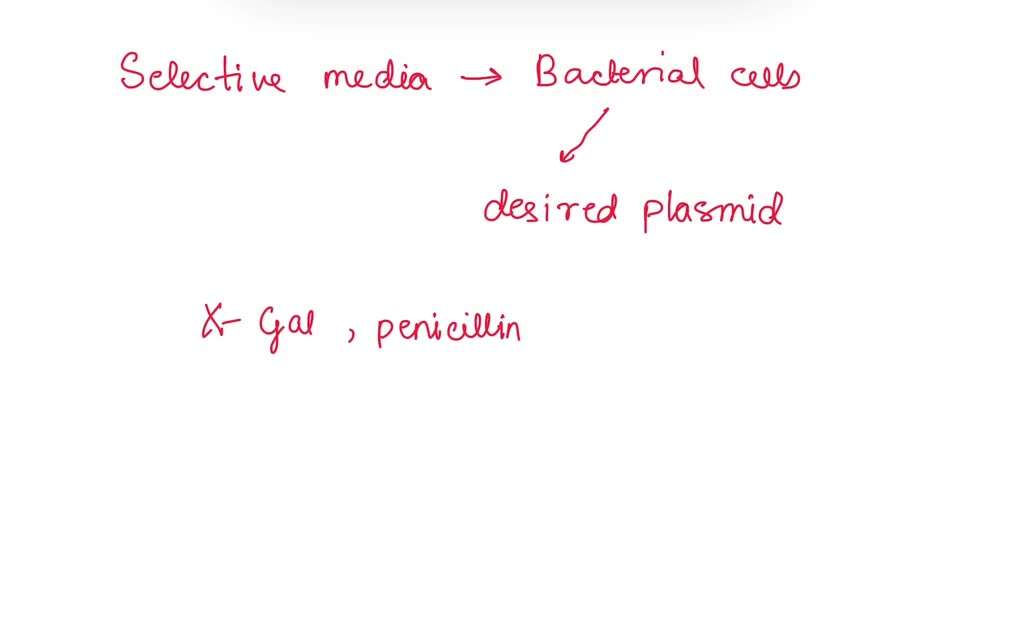 Selective media → Bacterial cells
desired plasmid
X-Gal, penicillin